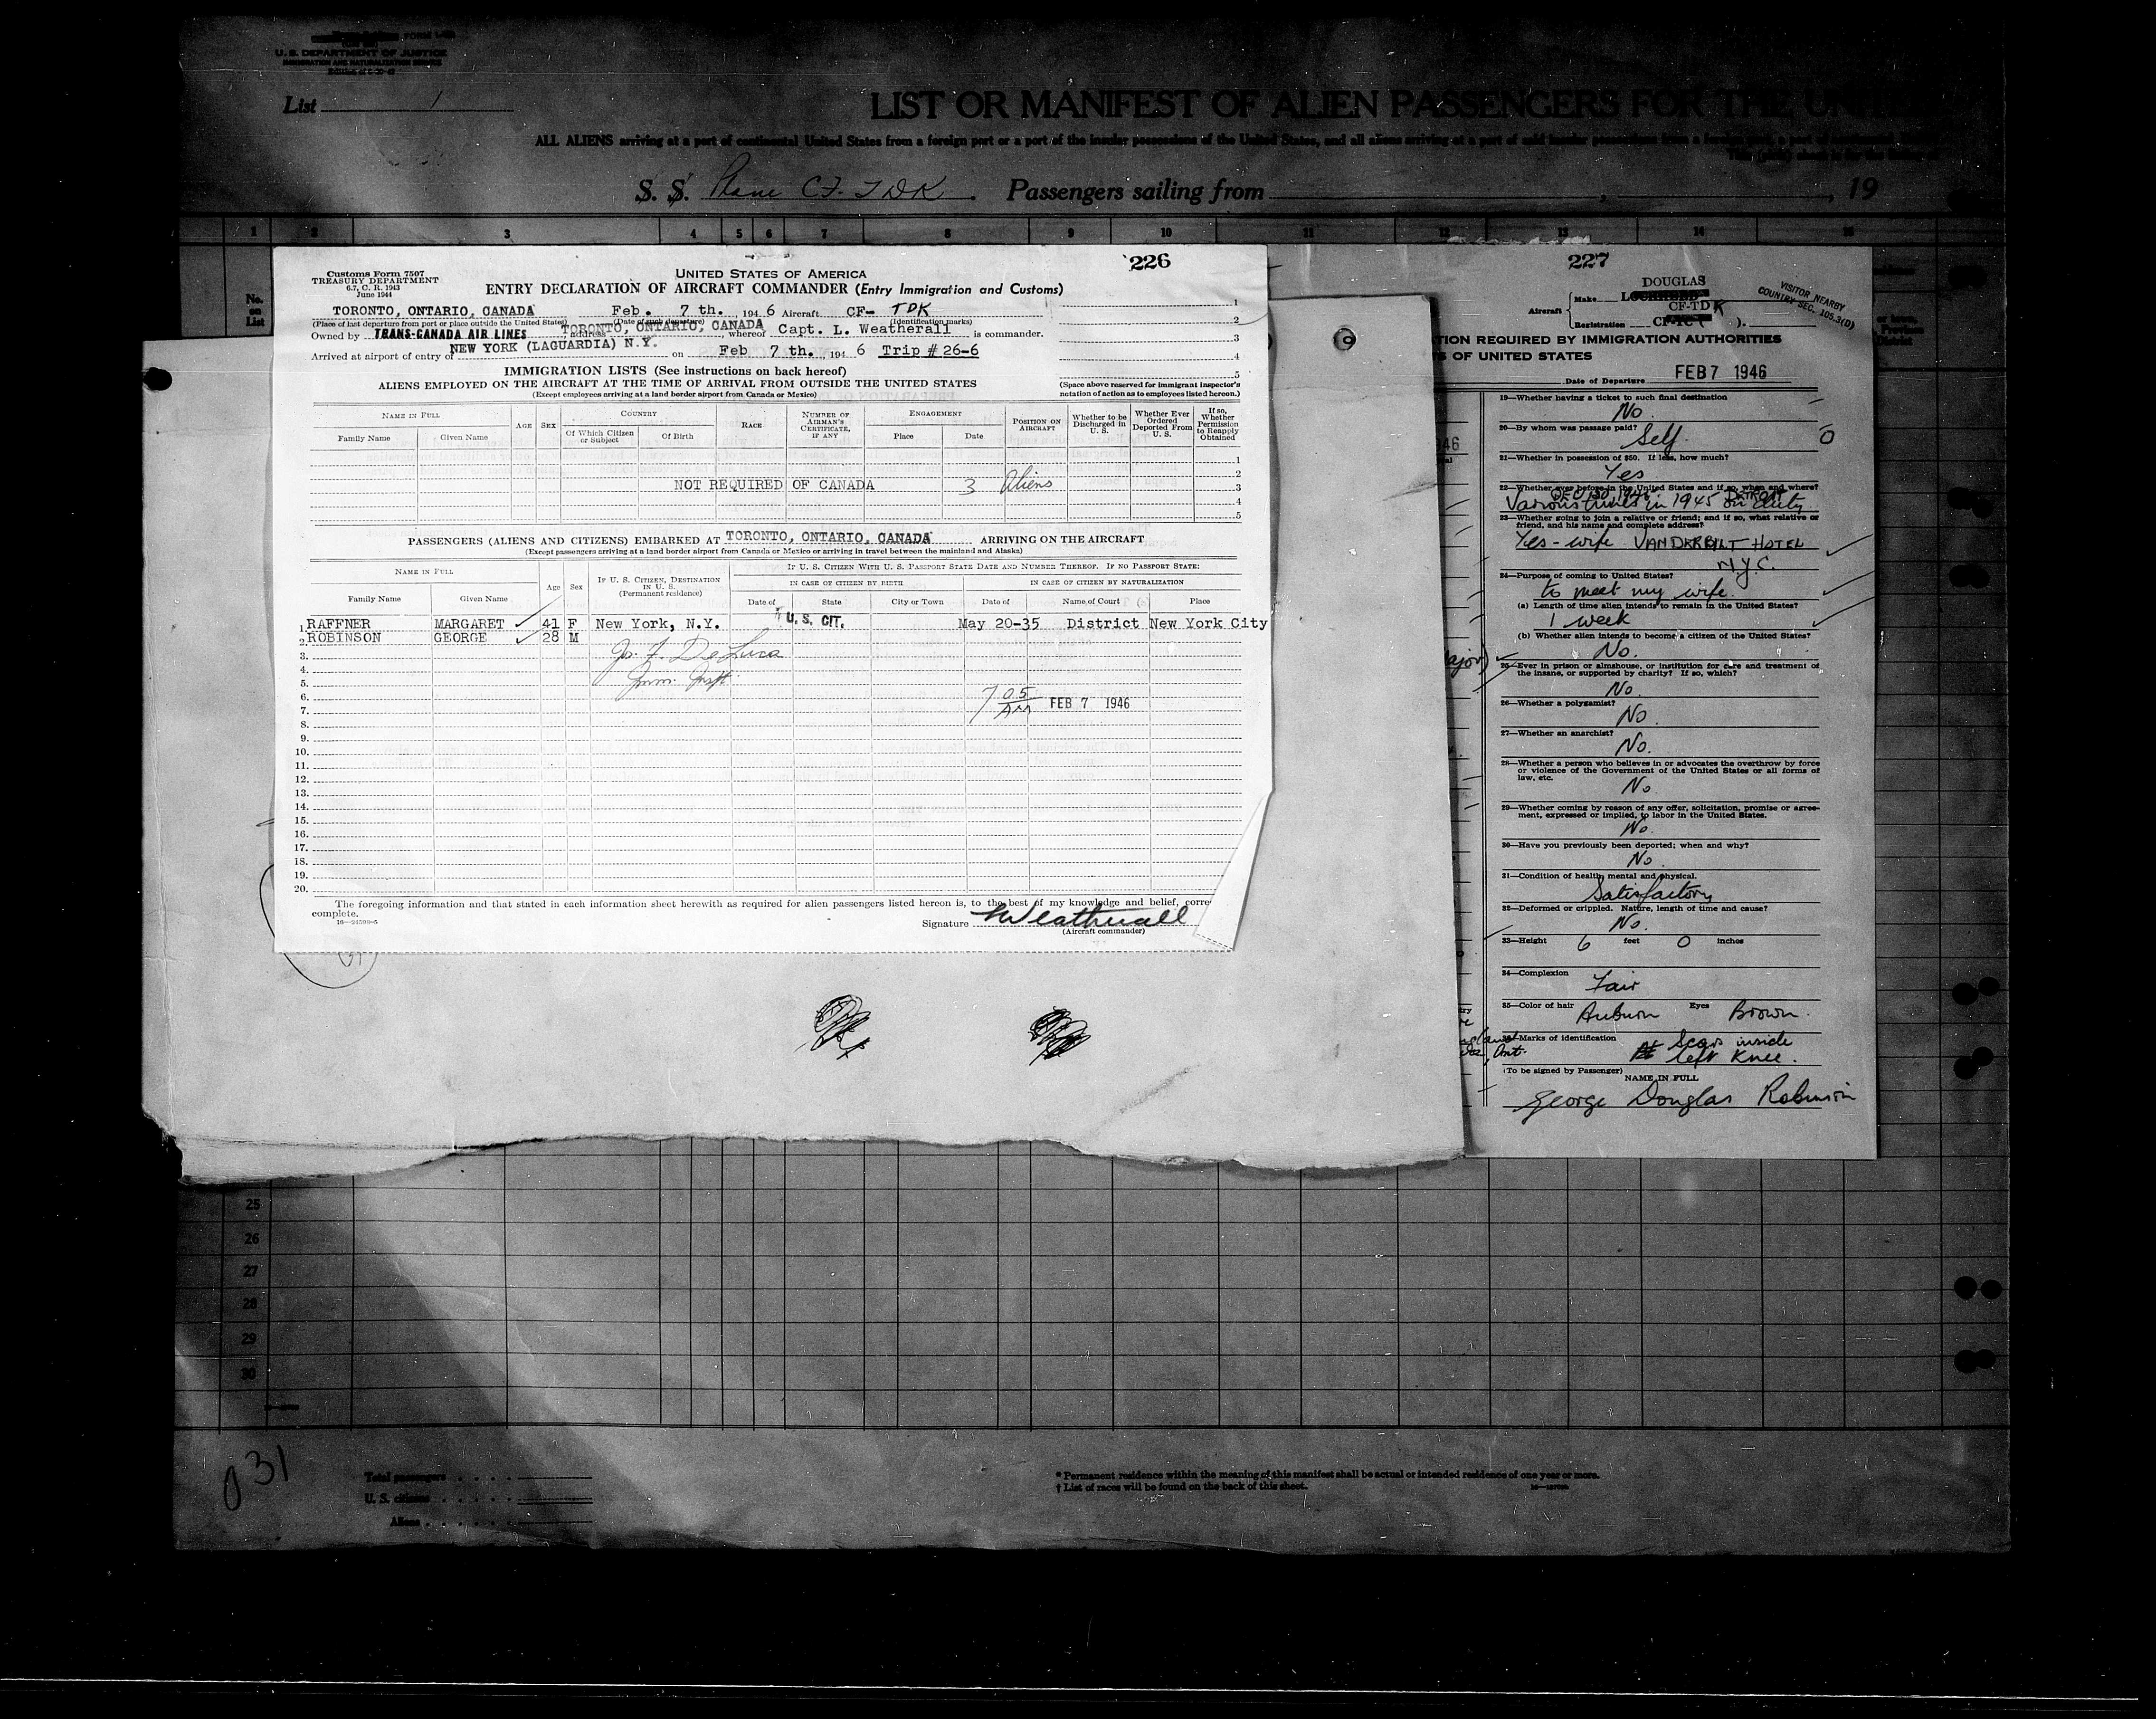 FORM I-
U. S. DEPARTMENT OF JUSTICE
IMMIGRATION AND NATURALIZATION SERVICE
List 1
LIST OR MANIFEST OF ALIEN PASSENGERS FOR THE UNITED
ALL ALIENS arriving at a port of continental United States from a foreign port or a port of the insular possessions of the United States, and all aliens arriving at a port of said insular possessions from a foreign port, a port of continental
S. S. Plane CF-TDK Passengers sailing from , 19
1 2 3 4 5 6 7 8 9 10 11 12 13 14 15
No. on List
226
Customs Form 7507
TREASURY DEPARTMENT
6.7, C. R. 1943
June 1944
UNITED STATES OF AMERICA
ENTRY DECLARATION OF AIRCRAFT COMMANDER (Entry Immigration and Customs)
TORONTO, ONTARIO, CANADA Feb. 7 th. , 194 6 Aircraft CF- TDK
(Place of last departure from port or place outside the United States) (Date of such departure) (Identification marks)
Owned by TRANS-CANADA AIR LINES, address TORONTO, ONTARIO, CANADA, whereof Capt. L. Weatherall is commander.
Arrived at airport of entry of NEW YORK (LAGUARDIA) N.Y. on Feb 7 th. , 194 6 Trip # 26-6
1
2
3
4
5
IMMIGRATION LISTS (See instructions on back hereof)
ALIENS EMPLOYED ON THE AIRCRAFT AT THE TIME OF ARRIVAL FROM OUTSIDE THE UNITED STATES
(Except employees arriving at a land border airport from Canada or Mexico)
(Space above reserved for immigrant inspector's notation of action as to employees listed hereon.)
NAME IN FULL
Family Name Given Name
AGE SEX
COUNTRY
Of Which Citizen or Subject Of Birth
RACE
NUMBER OF AIRMAN'S CERTIFICATE, IF ANY
ENGAGEMENT
Place Date
POSITION ON AIRCRAFT
Whether to be Discharged in U. S.
Whether Ever Ordered Deported From U. S.
If so, Whether Permission to Reapply Obtained
1
2
NOT REQUIRED OF CANADA 3 Aliens 3
4
5
PASSENGERS (ALIENS AND CITIZENS) EMBARKED AT TORONTO, ONTARIO, CANADA ARRIVING ON THE AIRCRAFT
(Except passengers arriving at a land border airport from Canada or Mexico or arriving in travel between the mainland and Alaska)
NAME IN FULL
Family Name Given Name
Age Sex
IF U. S. CITIZEN, DESTINATION IN U. S. (Permanent residence)
IF U. S. CITIZEN WITH U. S. PASSPORT STATE DATE AND NUMBER THEREOF. IF NO PASSPORT STATE:
IN CASE OF CITIZEN BY BIRTH IN CASE OF CITIZEN BY NATURALIZATION
Date of State City or Town Date of Name of Court Place
1. RAFFNER MARGARET 41 F New York, N.Y. U.S. CIT. May 20-35 District New York City
2. ROBINSON GEORGE 28 M
3. Jo. F. De Luca
4.
5. Imm. Inspt.
6.
7. 7 05 AM FEB 7 1946
8.
9.
10.
11.
12.
13.
14.
15.
16.
17.
18.
19.
20.
The foregoing information and that stated in each information sheet herewith as required for alien passengers listed hereon is, to the best of my knowledge and belief, corre
complete.
Signature Weatherall
(Aircraft commander)
227
DOUGLAS
Aircraft Make LOCKHEED
CF-TDK
Registration CF-TC ( ).
VISITOR NEARBY
COUNTRY SEC. 105.3(D)
TION REQUIRED BY IMMIGRATION AUTHORITIES
S OF UNITED STATES
Date of Departure FEB 7 1946
19—Whether having a ticket to such final destination
No
20—By whom was passage paid?
Self
21—Whether in possession of $50. If less, how much?
Yes
22—Whether ever before in the United States and if so, when and where?
Various times in 1945 on duty
DETROIT
23—Whether going to join a relative or friend; and if so, what relative or friend, and his name and complete address?
Yes - wife VANDERBILT HOTEL
N.Y.C.
24—Purpose of coming to United States?
to meet my wife.
(a) Length of time alien intends to remain in the United States?
1 week
(b) Whether alien intends to become a citizen of the United States?
No.
25—Ever in prison or almshouse, or institution for care and treatment of the insane, or supported by charity? If so, which?
No.
26—Whether a polygamist?
No.
27—Whether an anarchist?
No.
28—Whether a person who believes in or advocates the overthrow by force or violence of the Government of the United States or all forms of law, etc.
No.
29—Whether coming by reason of any offer, solicitation, promise or agreement, expressed or implied, to labor in the United States.
No.
30—Have you previously been deported; when and why?
No.
31—Condition of health, mental and physical.
Satisfactory
32—Deformed or crippled. Nature, length of time and cause?
No.
33—Height 6 feet 0 inches
34—Complexion
Fair
35—Color of hair Auburn Eyes Brown.
36—Marks of identification
Scar inside
left Knee.
(To be signed by Passenger)
NAME IN FULL
George Douglas Robinson
25
26
27
28
29
30
031
Total passengers
U. S. citizens
Aliens
* Permanent residence within the meaning of this manifest shall be actual or intended residence of one year or more.
† List of races will be found on the back of this sheet.